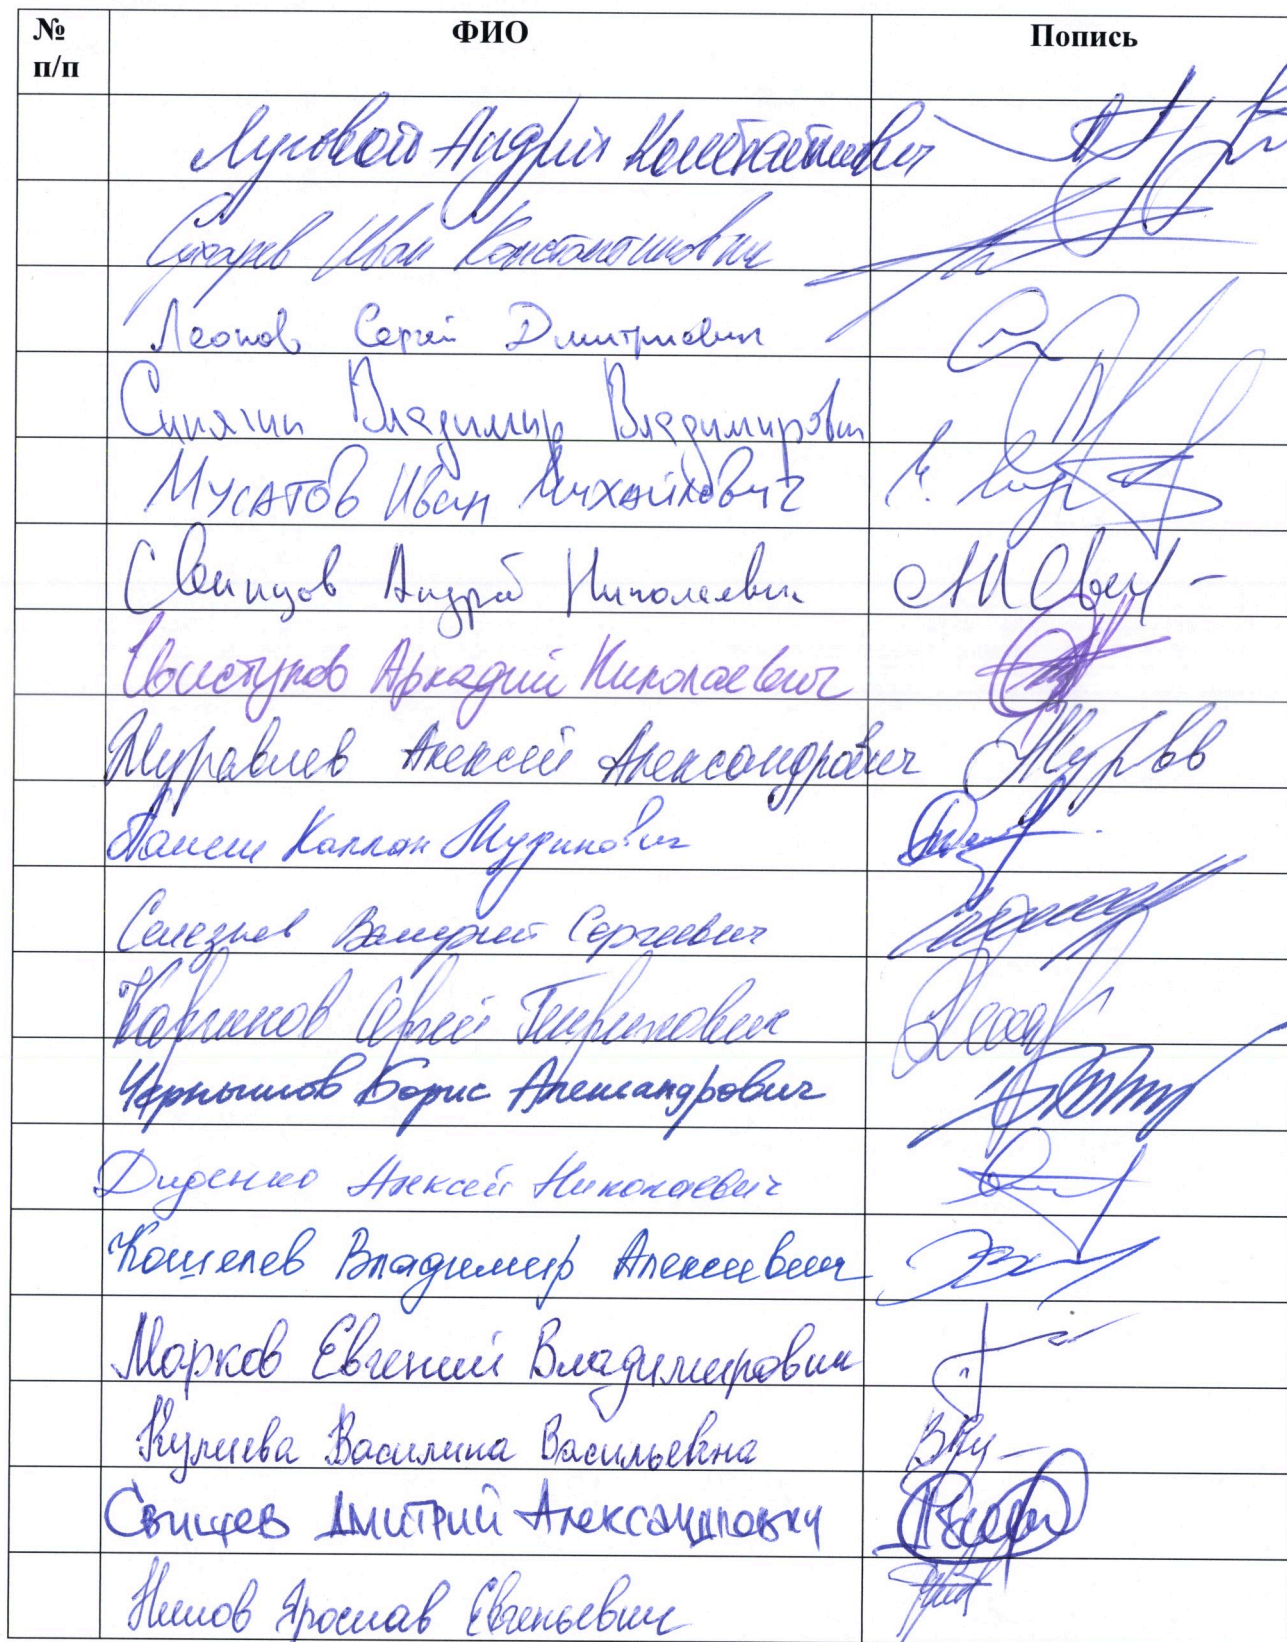 № п/п ФИО Попись
Луговой Андрей Константинович
Сухарев Иван Константинович
Леонов Сергей Дмитриевич
Синягин Владимир Владимирович
Мусатов Иван Михайлович
Свинцов Андрей Николаевич
Свистунов Аркадий Николаевич
Журавлев Алексей Александрович
Панеш Каплан Мугдинович
Селезнев Валерий Сергеевич
Каргинов Сергей Генрихович
Чернышов Борис Александрович
Диденко Алексей Николаевич
Кошелев Владимир Алексеевич
Марков Евгений Владимирович
Кулиева Василина Васильевна
Свищев Дмитрий Александрович
Нилов Ярослав Евгеньевич